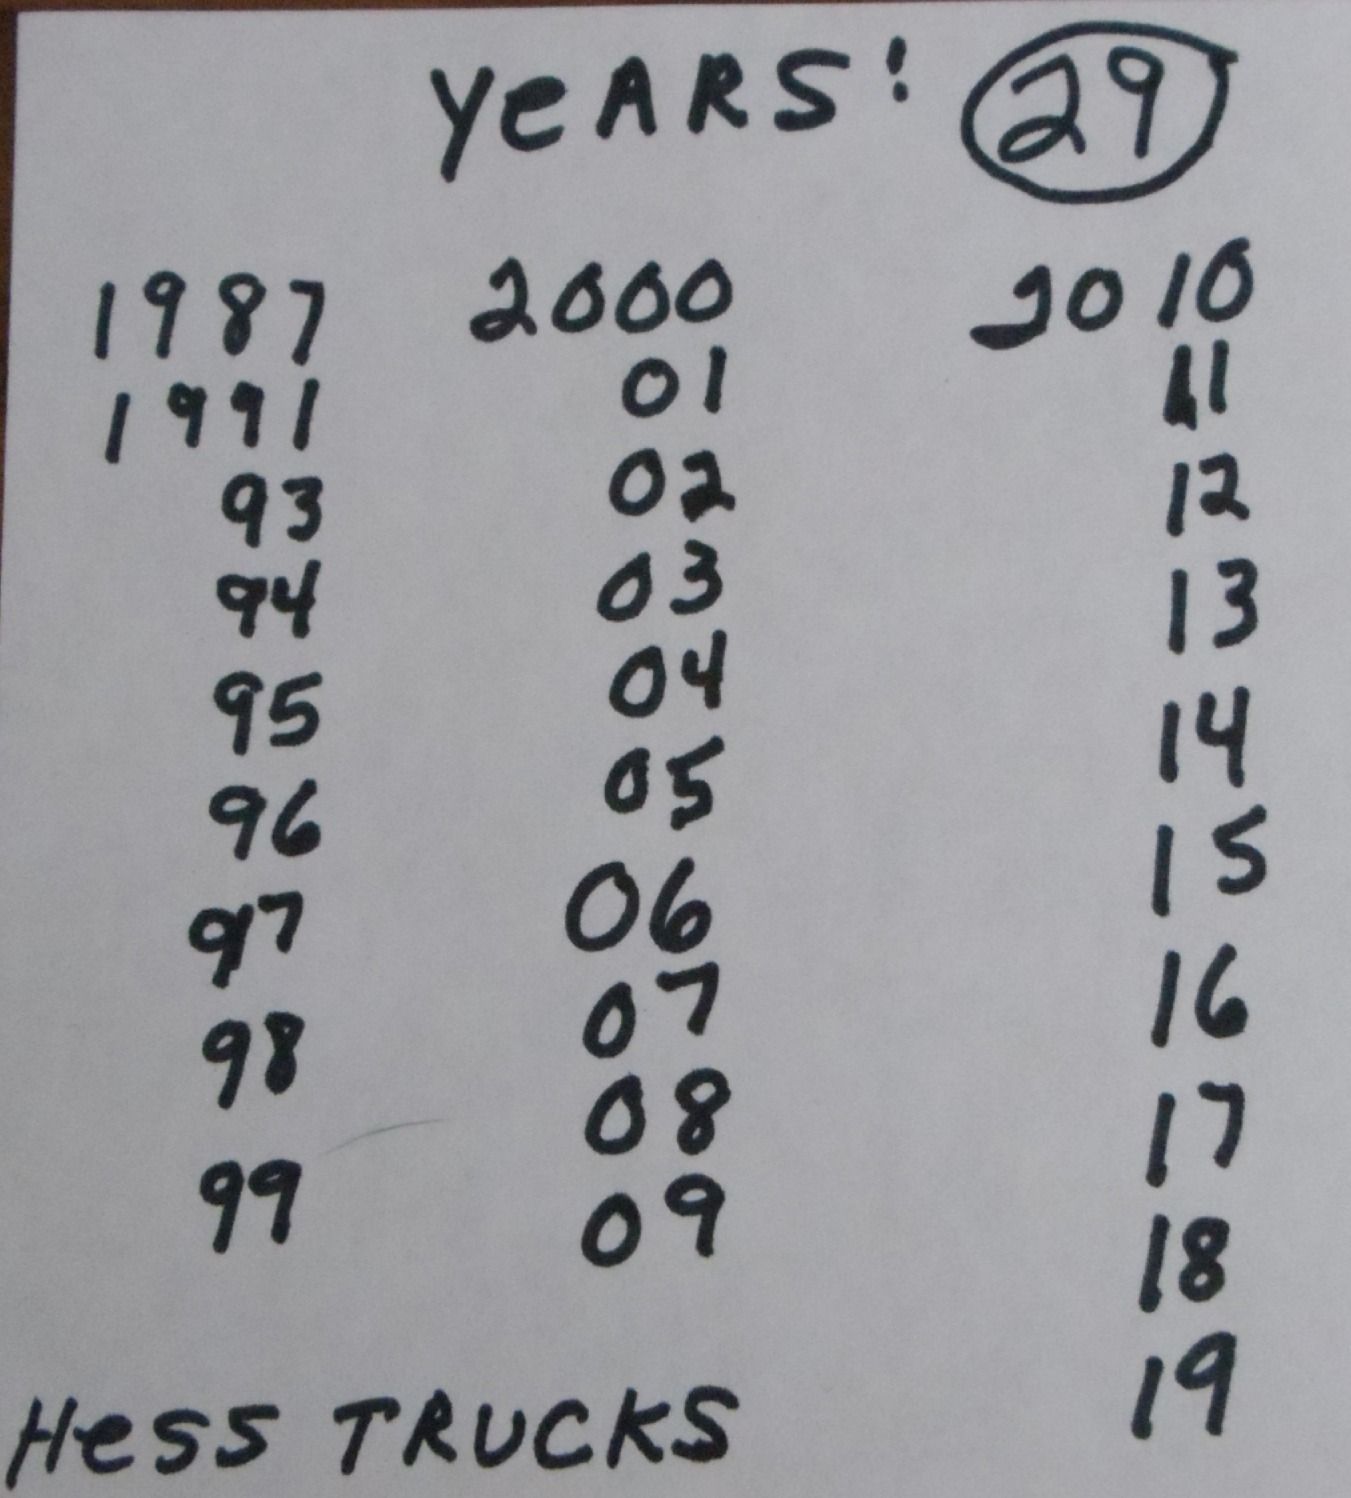 YeARS: 29
1987 2000 2010
1991 01 11
93 02 12
94 03 13
95 04 14
96 05 15
97 06 16
98 07 17
99 08 18
09 19
Hess TRUCKS